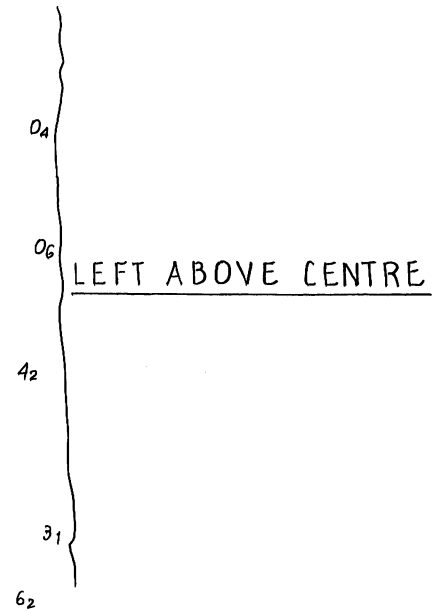 0₄
0₆
LEFT ABOVE CENTRE
4₂
3₁
6₂